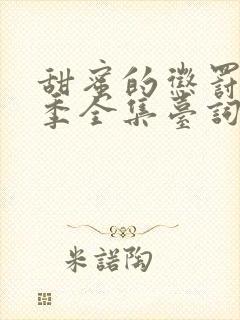 甜蜜的懲罰
季全集臺詞
米諾陶